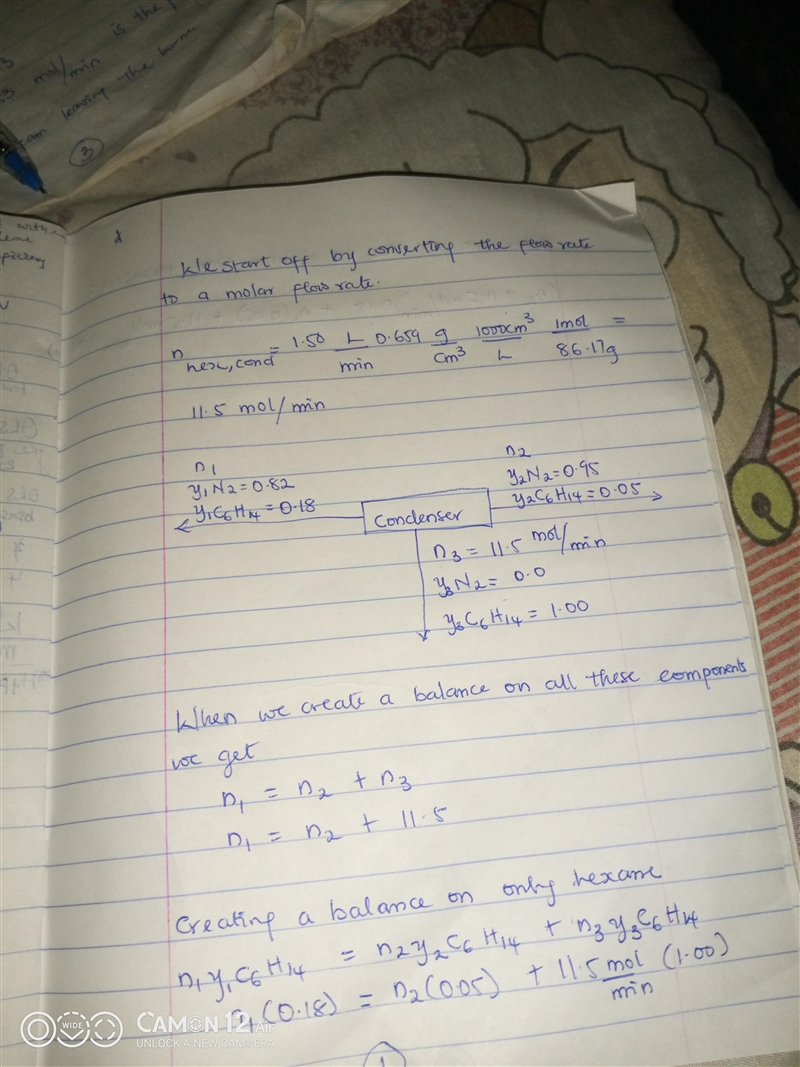 mol/min is the
leaving the burne
3
We start off by converting the flow rate
to a molar flow rate.
n hex, cond = 1.50 L/min 0.659 g/cm³ 1000cm³/L 1mol/86.17g =
11.5 mol/min
n1
y1N2 = 0.82
y1C6H14 = 0.18
Condenser
n2
y2N2 = 0.95
y2C6H14 = 0.05
n3 = 11.5 mol/min
y3N2 = 0.0
y3C6H14 = 1.00
When we create a balance on all these components
we get
n1 = n2 + n3
n1 = n2 + 11.5
Creating a balance on only hexane
n1y1C6H14 = n2y2C6H14 + n3y3C6H14
n1(0.18) = n2(0.05) + 11.5 mol/min (1.00)
WIDE
CAMON 12 Air
UNLOCK A NEW CAMERA